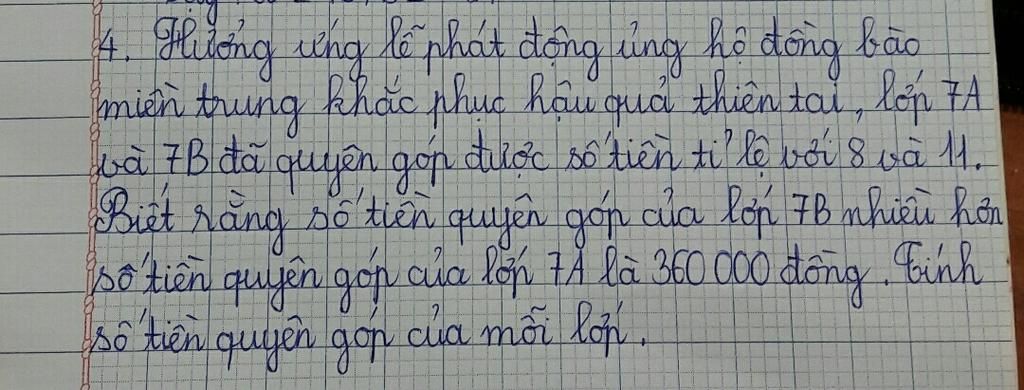 4. Hưởng ứng lễ phát động ủng hộ đồng bào
miền trung khắc phục hậu quả thiên tai, lớp 7A
và 7B đã quyên góp được số tiền tỉ lệ với 8 và 11.
Biết rằng số tiền quyên góp của lớp 7B nhiều hơn
số tiền quyên góp của lớp 7A là 360 000 đồng. Tính
số tiền quyên góp của mỗi lớp.